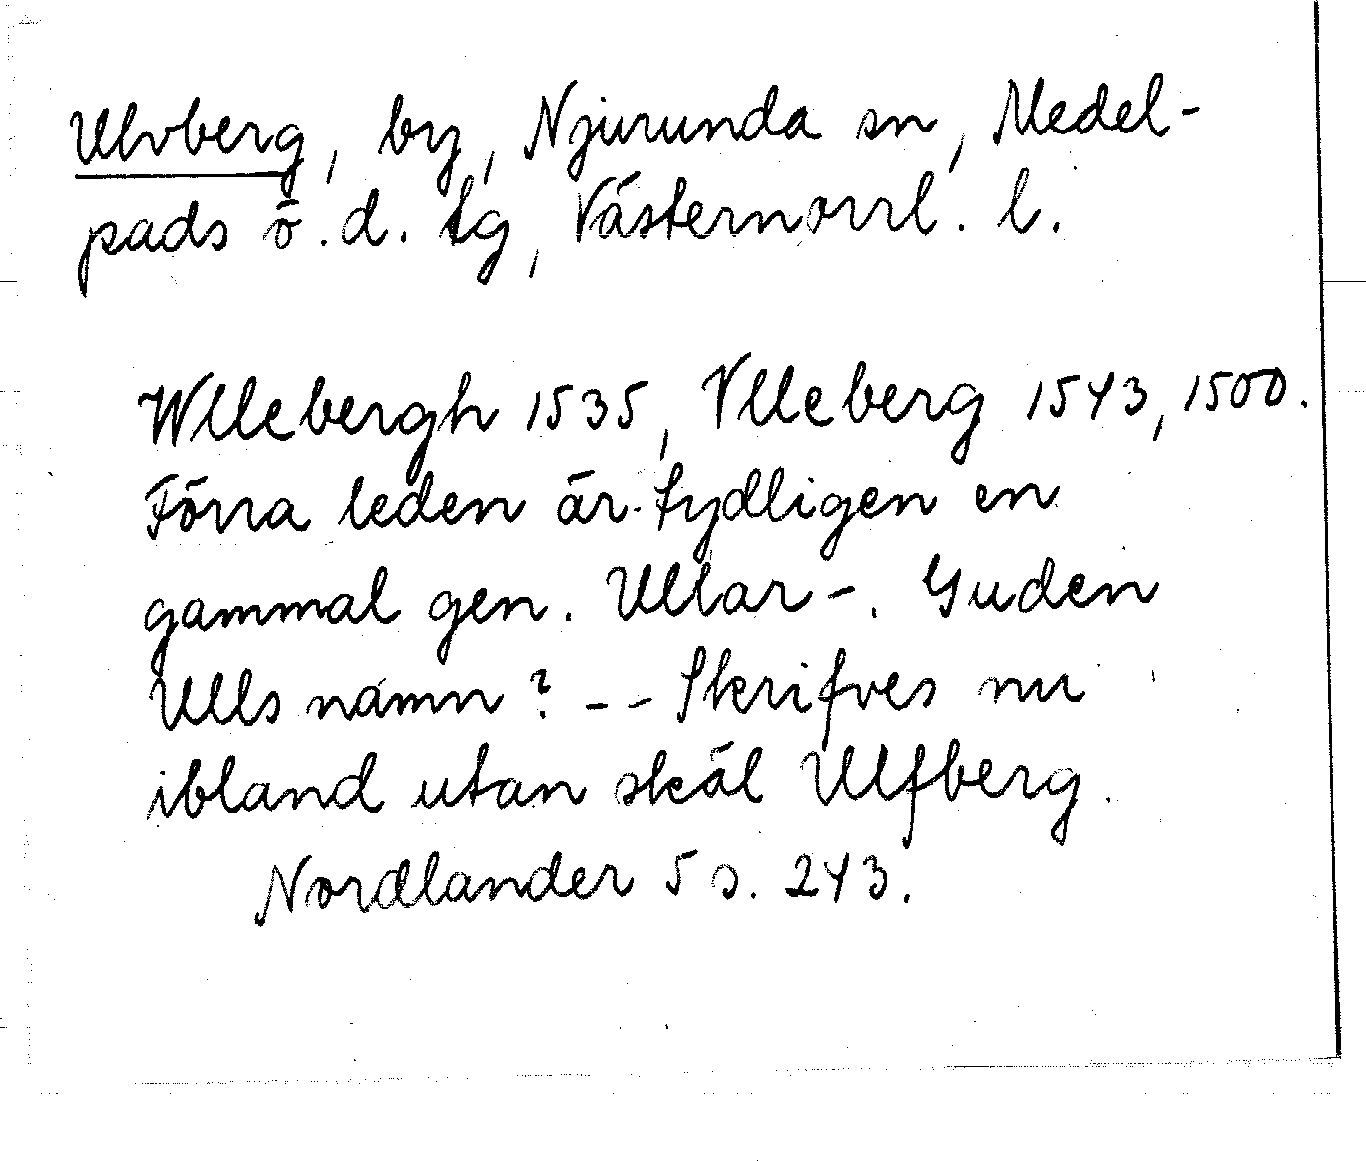 Ulvberg, by, Njurunda sn, Medel-
pads ö. d. tg, Västernorrl. l.
Wllebergh 1535, Vlleberg 1543, 1500.
Förra leden är tydligen en
gammal gen. Ullar-. Guden
Ulls namn? -- Skrifves nu
ibland utan skäl Ulfberg.
Nordlander 5 s. 243.